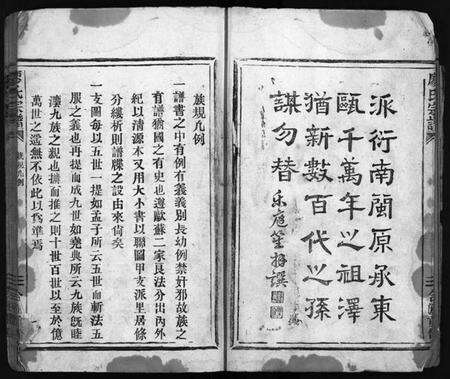 派衍南閩原承東
甌千萬年之祖澤
猶新數百代之孫
謀勿替
族規凡例
一譜書之中有例有義義別長幼例禁奸邪故族之
有譜猶國之有史也遵歐蘇二家良法分出內外
紀以清源本又用大小書以聯圖甲支派里居條
分縷析則譜牒之設由來尚矣
一支圖每以五世一提如孟子所云五世而斬法五
服之義也再提而成九世如堯典所云九族既睦
湊九族之親也提而推之則十世百世以至於億
萬世之遙無不依此以為準焉